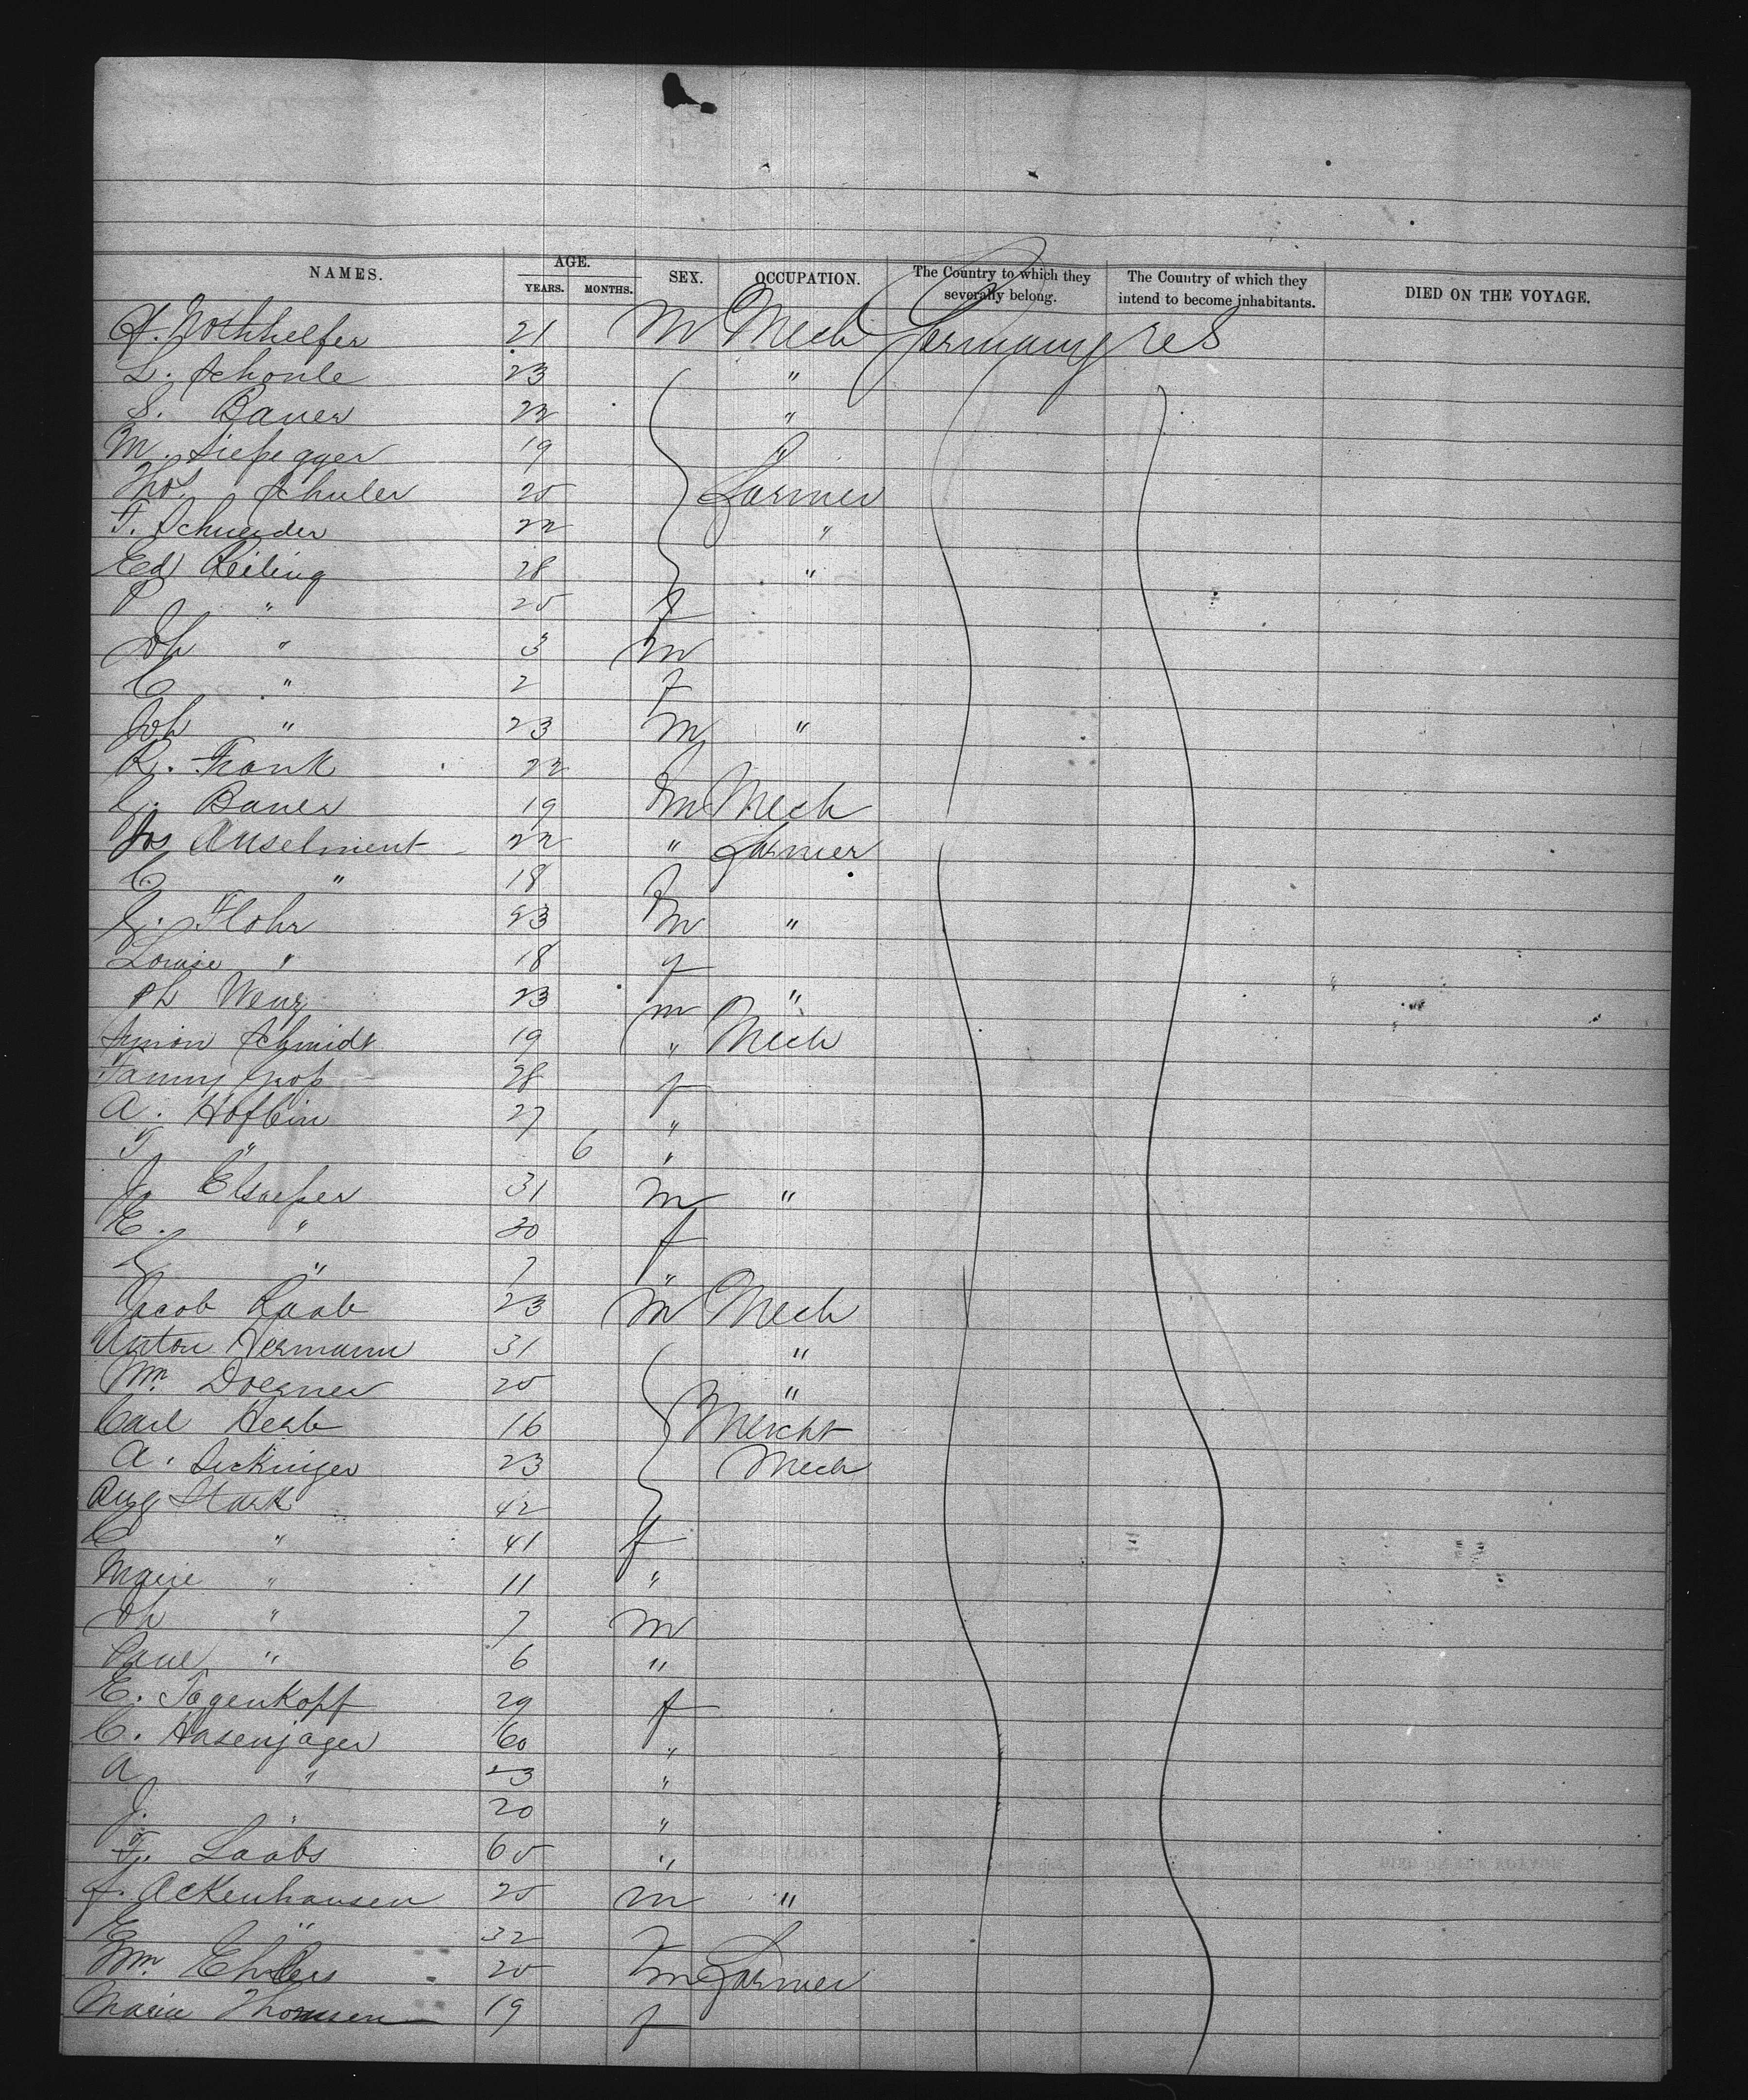 NAMES. AGE. YEARS. MONTHS. SEX. OCCUPATION. The Country to which they severally belong. The Country of which they intend to become inhabitants. DIED ON THE VOYAGE.
A. Nothhelfer 21 M Mech Germany US
L. Schonle 23 "
S. Bauer 22 "
M. Siefegger 19 "
Thos. Schuler 25 Farmer
F. Schneider 22 "
Ed Reiling 28 "
" 25 f
Joh " 3 m
C " 2 f
Joh " 23 m "
R. Frank 22 f
G. Bauer 19 m Mech
Jos Anselment 22 " Farmer
C " 18 f
G. Flohr 23 m "
Louise " 18 f
Ph Wenz 23 m "
Simon Schmidt 19 " Mech
Fanny Groß 28 f
A. Höflein 27 "
F " 6 "
J. Elsaesser 31 m "
E. " 30 f
" 7 "
Jacob Raab 23 m Mech
Anton Hermann 31 "
Wm. Doerner 25 "
Carl Herb 16 Mercht
A. Seckinger 23 Mech
Aug Stark 42
C " 41 f
Marie " 11 "
Joh " 7 m
Paul " 6 "
E. Tagenkopf 29 f
C. Hasenjager 60 "
A " 23 "
J. " 20 "
F. Laabs 65 "
f. Ackenhausen 25 m "
E " 32 f
Wm. Ehlers 25 m Farmer
Maria Thomsen 19 f